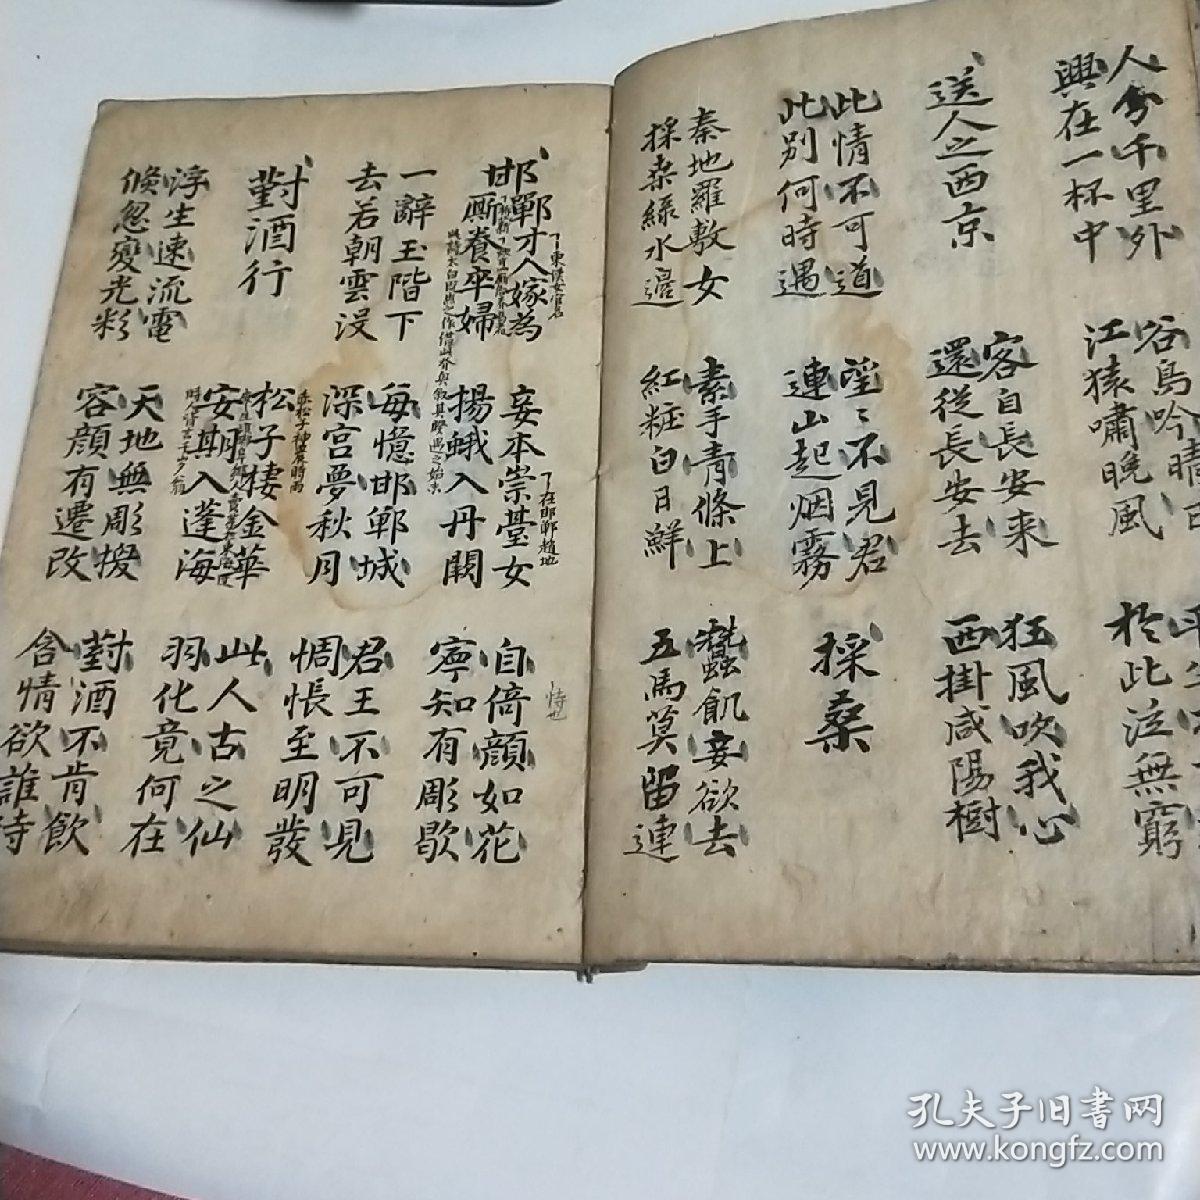 人分千里外
興在一杯中
谷鳥吟晴
江猿嘯晚風
於此泣無窮
送人之西京
客自長安来
還從長安去
狂風吹我心
西掛咸陽樹
此情不可道
此別何時遇
望〻不見君
連山起烟霧
採桑
秦地羅敷女
採桑綠水邊
素手青條上
紅粧白日鮮
蠶飢妾欲去
五馬莫留連
邯鄲才人嫁為
厮養卒婦
妾本崇臺女
在邯鄲趙地
揚蛾入丹闕
自倚顔如花
恃也
寧知有彫歇
一辭玉階下
去若朝雲没
每憶邯鄲城
深宮夢秋月
君王不可見
惆悵至明發
對酒行
松子棲金華
赤松子神農時雨
安期入蓬海
此人古之仙
羽化竟何在
浮生速流電
倏忽變光彩
天地無彫換
容顔有遷改
對酒不肯飲
含情欲誰待
孔夫子旧书网
www.kongfz.com